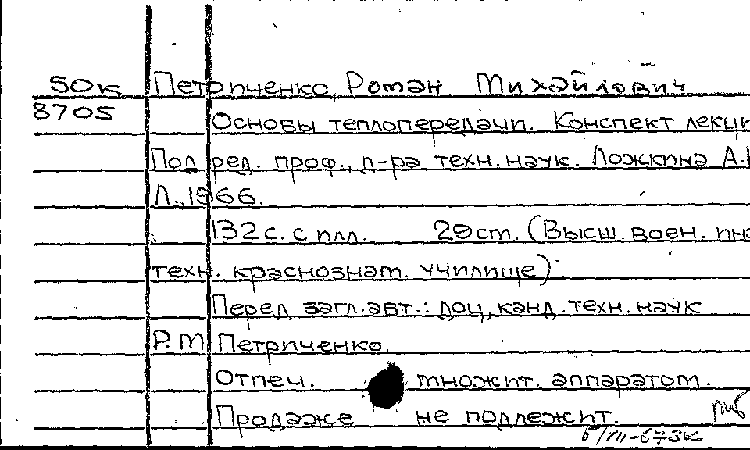 50к Петриченко, Роман Михайлович
8705
Основы теплопередачи. Конспект лекци
Под ред. проф., д-ра техн. наук. Ложкина А.
Л., 1966.
132 с. с илл. 29 см. (Высш. воен. ин
техн. краснознам. училище)
Перед загл. авт.: доц. канд. техн. наук
Р.М Петриченко.
Отпеч. множит. аппаратом.
Продаже не подлежит.